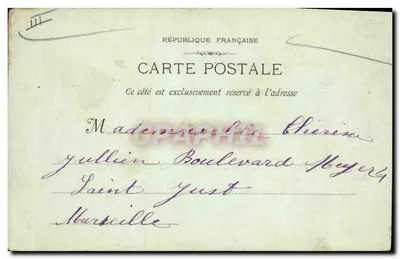 III
RÉPUBLIQUE FRANÇAISE
CARTE POSTALE
Ce côté est exclusivement réservé à l'adresse
Mademoiselle Thérèse
Jullien Boulevard Meyer
Saint Just
Marseille